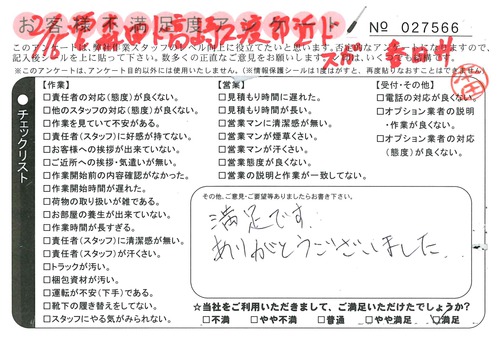 お客様不満足度アンケート
No 027566
このアンケートは、弊社作業スタッフのレベル向上に役立てたいと思います。否定的なアンケートになりますので、
記入後シールを上に貼って下さい。数多くの正直なご意見をお願いします。
※このアンケートは、アンケート目的以外には使用いたしません。(※情報保護シールは1度はがすと、再度貼りなおすことはできません)
●チェックリスト
【作業】
□責任者の対応(態度)が良くない。
□他のスタッフの対応(態度)が良くない。
□作業を見ていて不安がある。
□責任者(スタッフ)に好感が持てない。
□お客様への挨拶が出来ていない。
□ご近所への挨拶・気遣いが無い。
□作業開始前の内容確認がなかった。
□作業開始時間が遅れた。
□荷物の取り扱いが雑である。
□お部屋の養生が出来ていない。
□作業時間が長すぎる。
□責任者(スタッフ)に清潔感が無い。
□責任者(スタッフ)が汗くさい。
□トラックが汚い。
□梱包資材が汚い。
□運転が不安(下手)である。
□靴下の履き替えをしてない。
□スタッフにやる気がみられない。
【営業】
□見積もり時間に遅れた。
□見積もり時間が長い。
□営業マンに清潔感が無い。
□営業マンが煙草くさい。
□営業マンが汗くさい。
□営業態度が良くない。
□営業の説明と作業が一致してない。
【受付・その他】
□電話の対応が良くない。
□オプション業者の説明
・作業が良くない。
□オプション業者の対応
(態度)が良くない。
その他、ご意見・ご要望等ありましたらお書き下さい。
満足です。
ありがとうございました。
☆当社をご利用いただきまして、ご満足いただけたでしょうか?
□不満 □やや不満 □普通 □やや満足 □満足